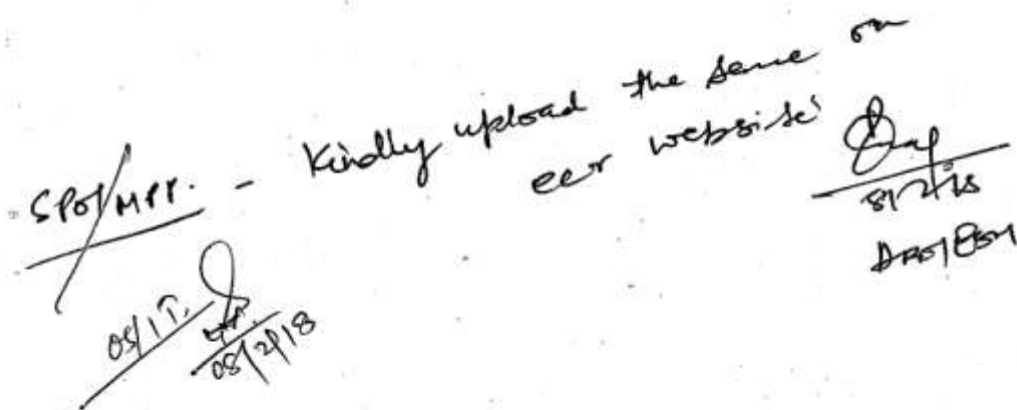 SPO/MPP. - Kindly upload the same on
ecr website
8/2/18
OS/IT.
08/2/18